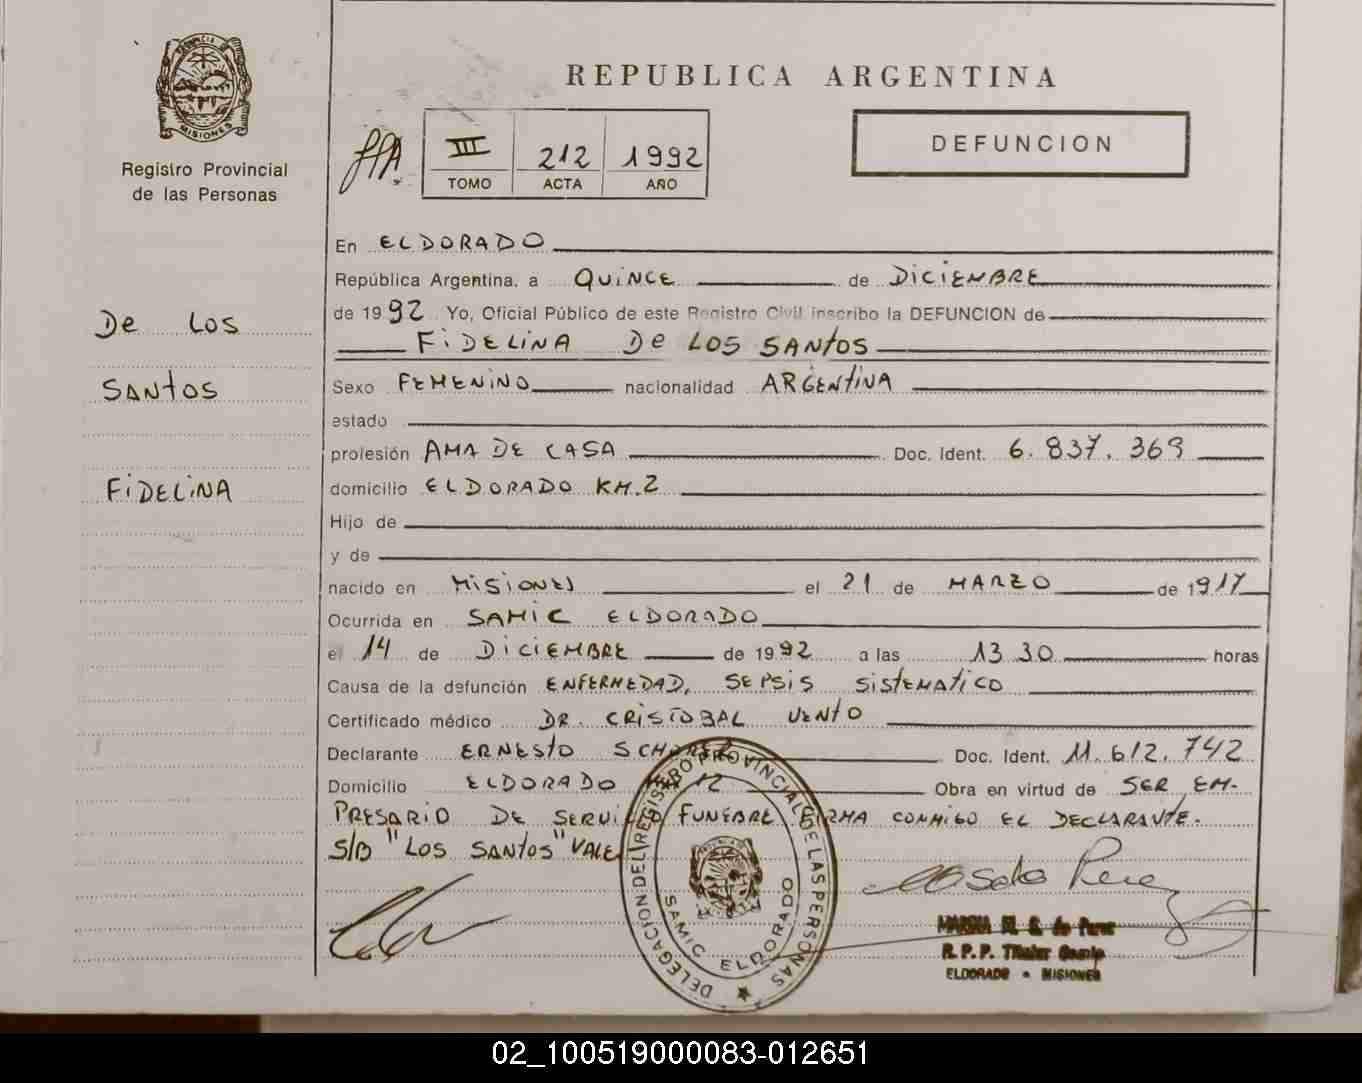 PROVINCIA DE
MISIONES
Registro Provincial
de las Personas
De Los
SANTOS
FIDELINA
REPUBLICA ARGENTINA
III 212 1992
TOMO ACTA AÑO
DEFUNCION
En ELDORADO
República Argentina, a QUINCE de DICIEMBRE
de 1992 Yo, Oficial Público de este Registro Civil inscribo la DEFUNCION de
FIDELINA De LOS SANTOS
Sexo FEMENINO nacionalidad ARGENTINA
estado
profesión AMA DE CASA Doc. Ident. 6.837.369
domicilio ELDORADO KM.2
Hijo de
y de
nacido en MISIONES el 21 de MARZO de 1917
Ocurrida en SAMIC ELDORADO
el 14 de DICIEMBRE de 1992 a las 13 30 horas
Causa de la defunción ENFERMEDAD, SEPSIS SISTEMATICO
Certificado médico DR. CRISTOBAL VENTO
Declarante ERNESTO Doc. Ident. 11.612.742
Domicilio ELDORADO 12 Obra en virtud de SER EM-
PRESARIO DE SERVICIO FUNEBRE FIRMA CONMIGO EL DECLARANTE.
S/B "LOS SANTOS" VALE
DELEGACION DEL REGISTRO PROVINCIAL DE LAS PERSONAS
SAMIC ELDORADO
de Perez
R.P.P. Titular
ELDORADO - MISIONES
02_100519000083-012651